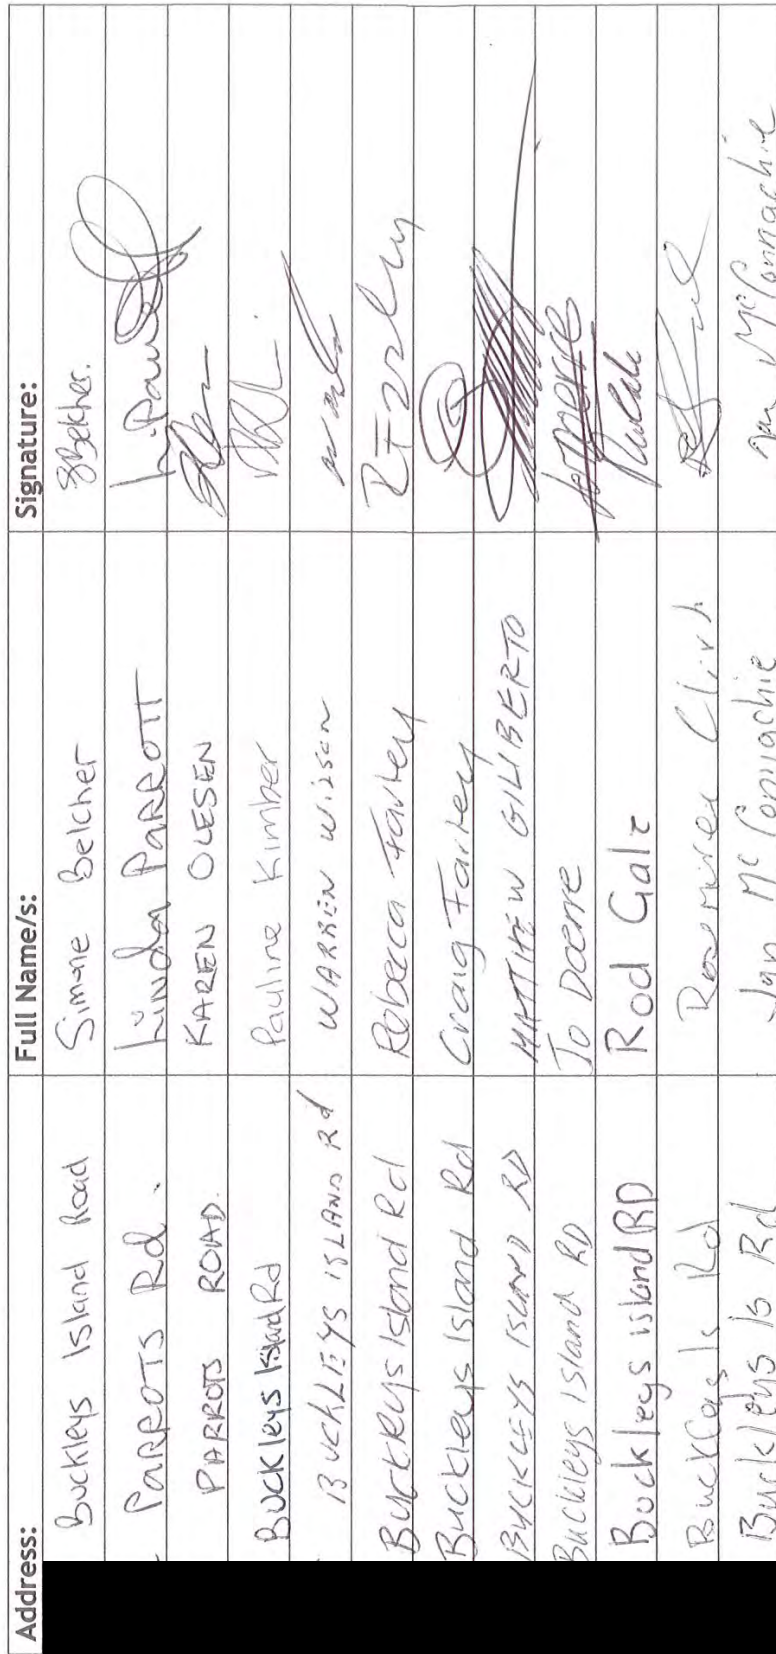 Address: Full Name/s: Signature:
Buckleys Island Road Simone Belcher SBelcher.
Parrots Rd. Linda Parrott
Parrots Road. Karen Olesen
Buckleys Island Rd Pauline Kimber
Buckleys Island Rd Warren Wilson
Buckleys Island Rd Rebecca Farley
Buckleys Island Rd Craig Farley
Buckleys Island Rd Matthew Giliberto
Buckleys Island Rd Jo Doerre
Buckleys island RD Rod Gale
Buckleys Is Rd
Buckleys Is Rd Jan McConnachie Jan McConnachie